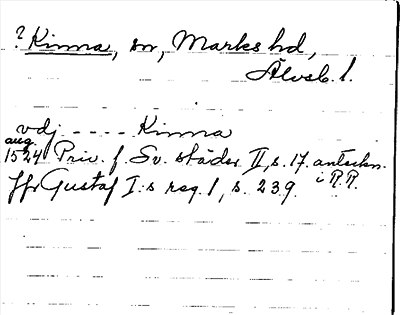 ? Kinna, sn, Marks hd,
Älvsb. l.
vdj - - - - Kinna
aug.
1524 Priv. f. Sv. städer II, s. 17. anteckn.
i R.R.
jfr Gustaf I:s reg. 1, s. 239.